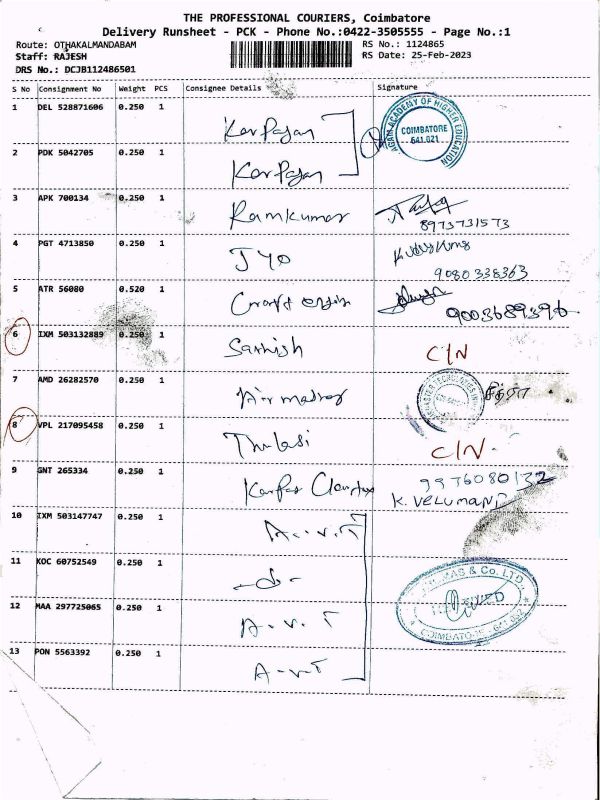 THE PROFESSIONAL COURIERS, Coimbatore
Delivery Runsheet - PCK - Phone No.:0422-3505555 - Page No.:1
Route: OTHAKALMANDABAM
RS No.: 1124865
Staff: RAJESH
RS Date: 25-Feb-2023
DRS No.: DCJB112486501
S No Consignment No Weight PCS Consignee Details Signature
1 DEL 528871606 0.250 1 Karpagam
AGAM ACADEMY OF HIGHER EDUCATION
COIMBATORE
641.021
2 PDK 5042705 0.250 1 Karpagam
3 APK 700134 0.250 1 Ramkumar
8973731573
4 PGT 4713850 0.250 1 Jyo
9080338363
5 ATR 56080 0.520 1
9003689396
6 IXM 503132889 0.250 1 Sathish C/N
7 AMD 26282570 0.250 1 சித்ரா
8 VPL 217095458 0.250 1 Thulasi C/N
9 GNT 265334 0.250 1 9976080132
K. VELUMANI
10 IXM 503147747 0.250 1 A.V.T
11 KOC 60752549 0.250 1 -do-
& Co. LTD.,
COIMBATORE
12 MAA 297725065 0.250 1 A.V.T
13 PON 5563392 0.250 1 A.V.T